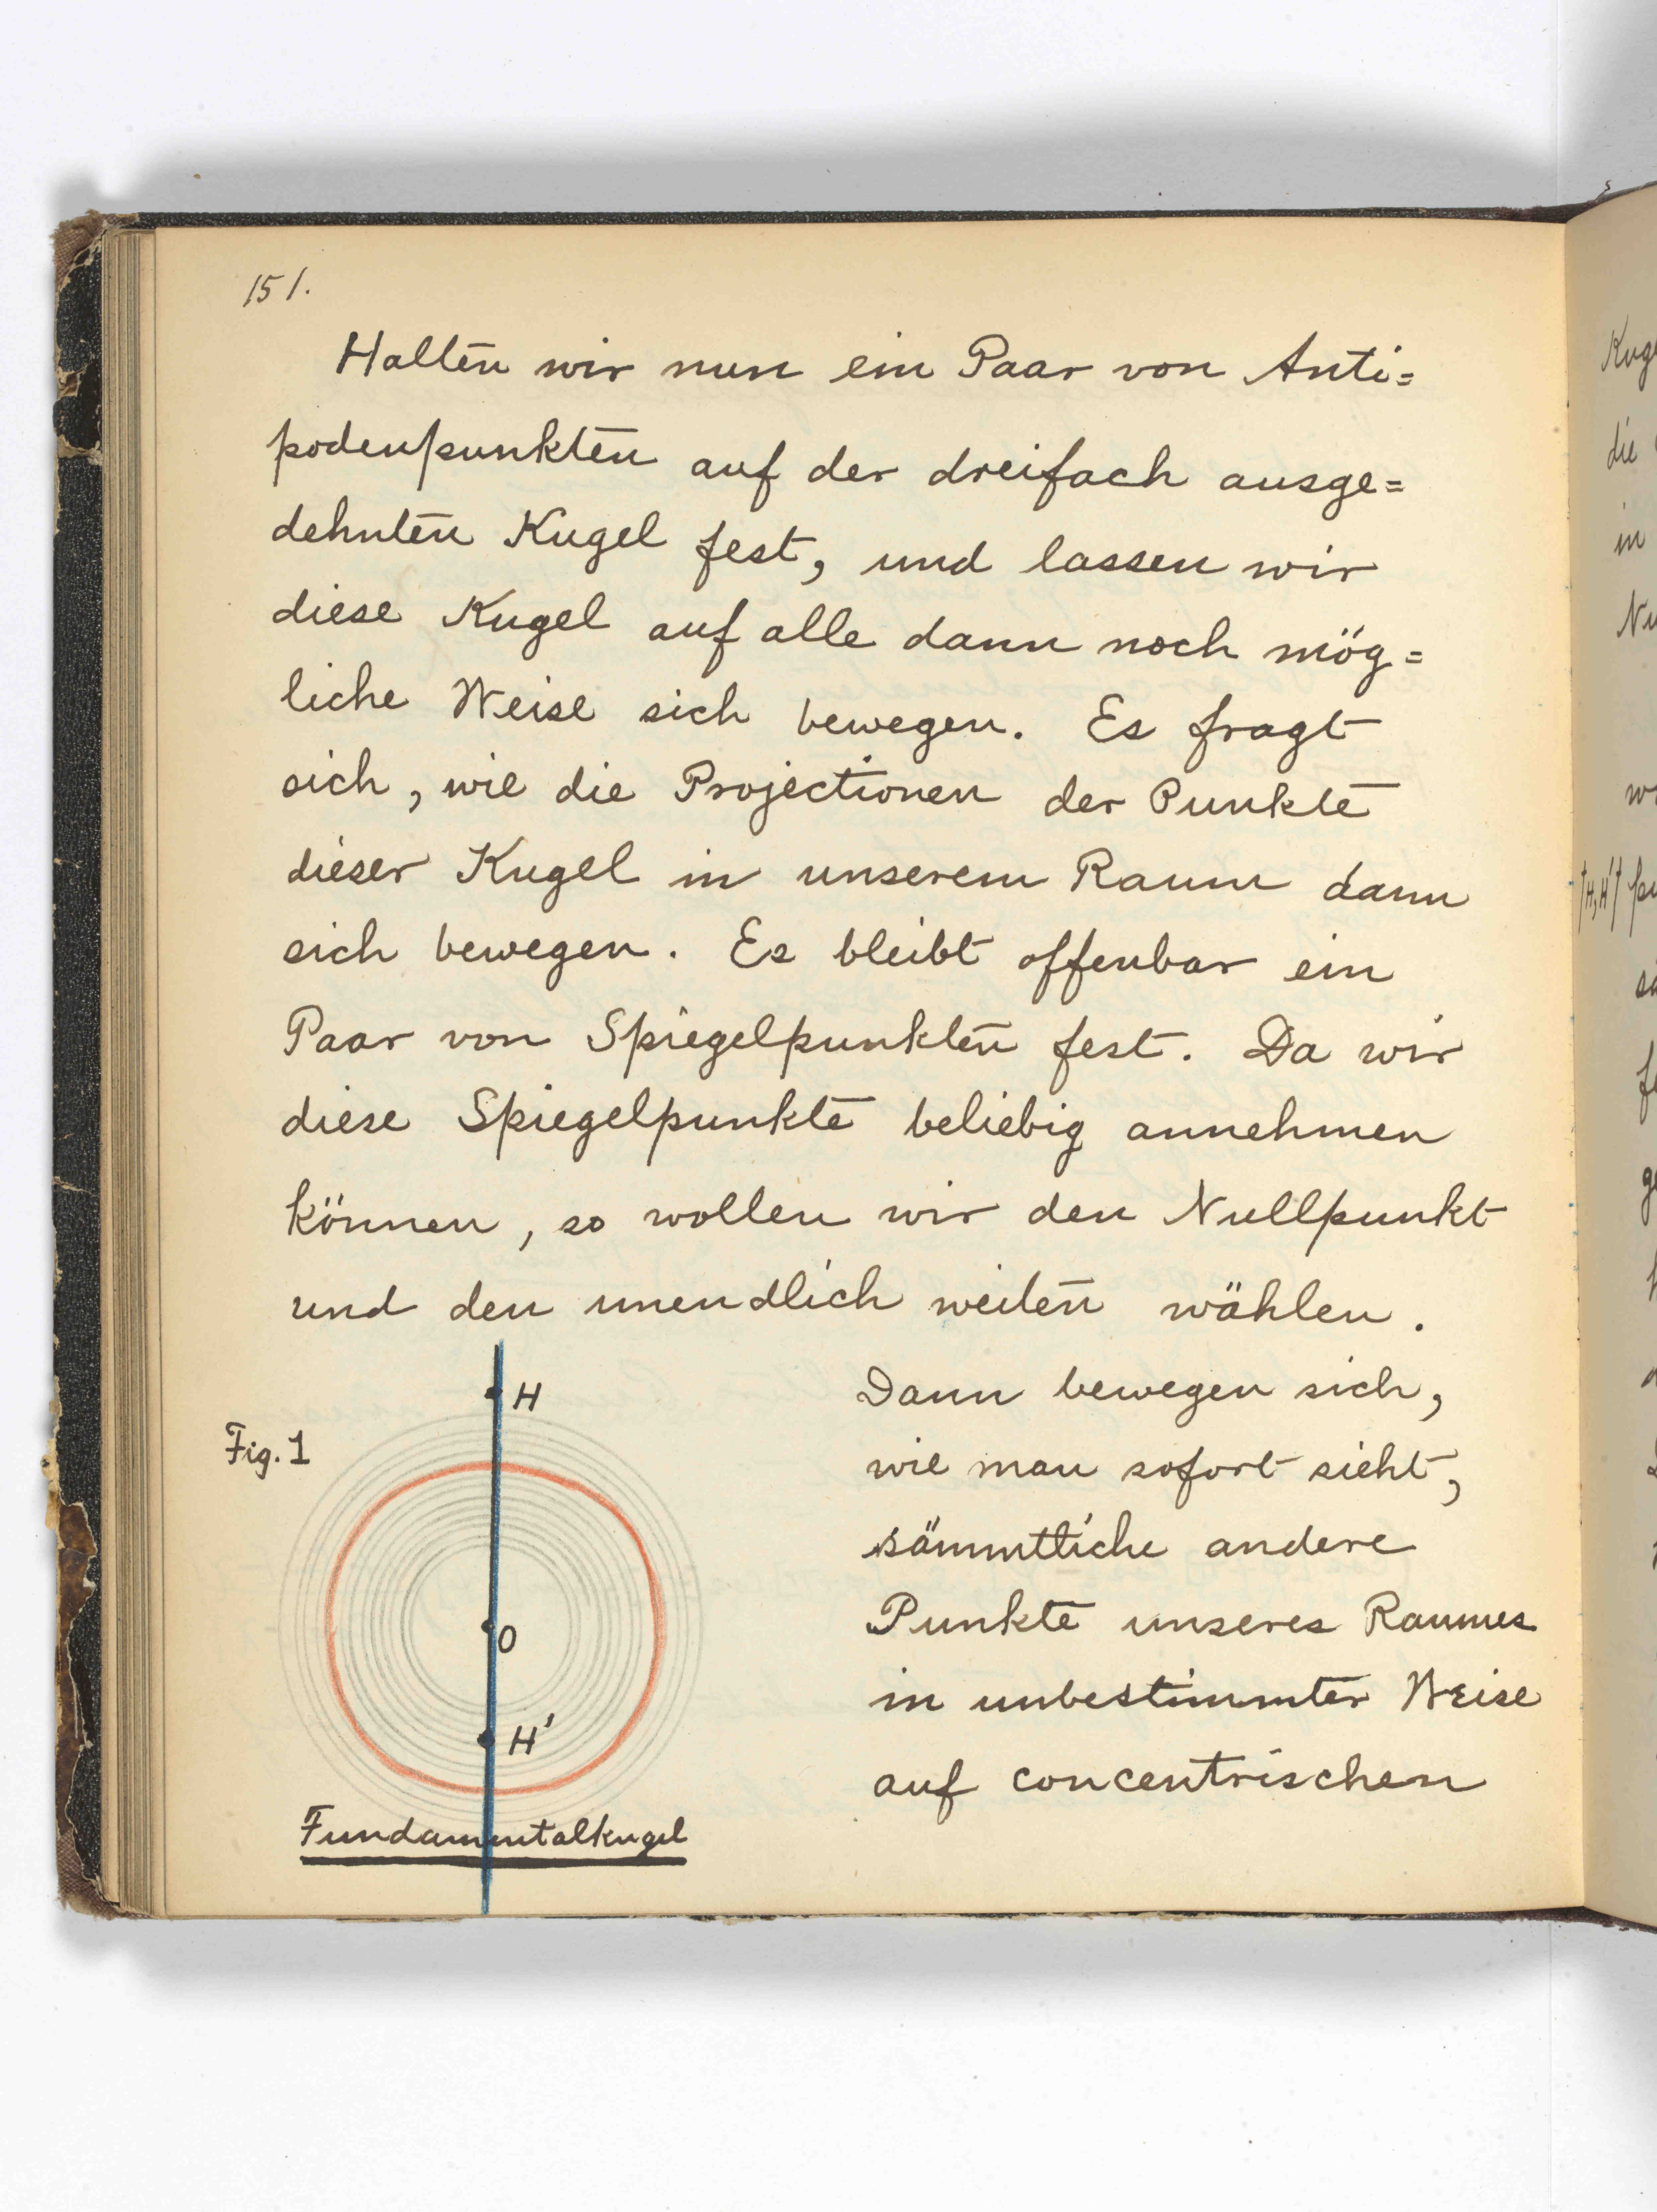 151.
Halten wir nun ein Paar von Anti=
podenpunkten auf der dreifach ausge=
dehnten Kugel fest, und lassen wir
diese Kugel auf alle dann noch mög=
liche Weise sich bewegen. Es fragt
sich, wie die Projectionen der Punkte
dieser Kugel in unserem Raum dann
sich bewegen. Es bleibt offenbar ein
Paar von Spiegelpunkten fest. Da wir
diese Spiegelpunkte beliebig annehmen
können, so wollen wir den Nullpunkt
und den unendlich weiten wählen.
Dann bewegen sich,
wie man sofort sieht,
sämmtliche andere
Punkte unseres Raumes
in unbestimmter Weise
auf concentrischen
Fig. 1
H
O
H'
Fundamentalkugel
die
in
H,H'